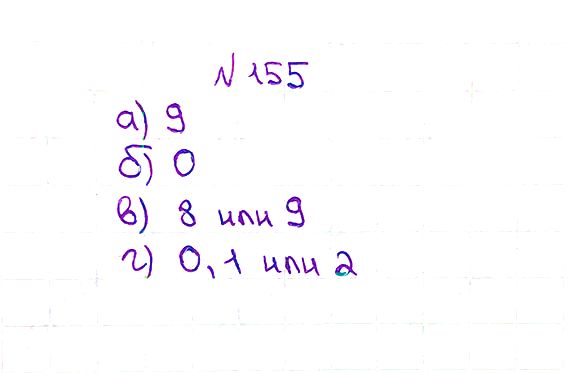 № 155
а) 9
б) 0
в) 8 или 9
г) 0, 1 или 2